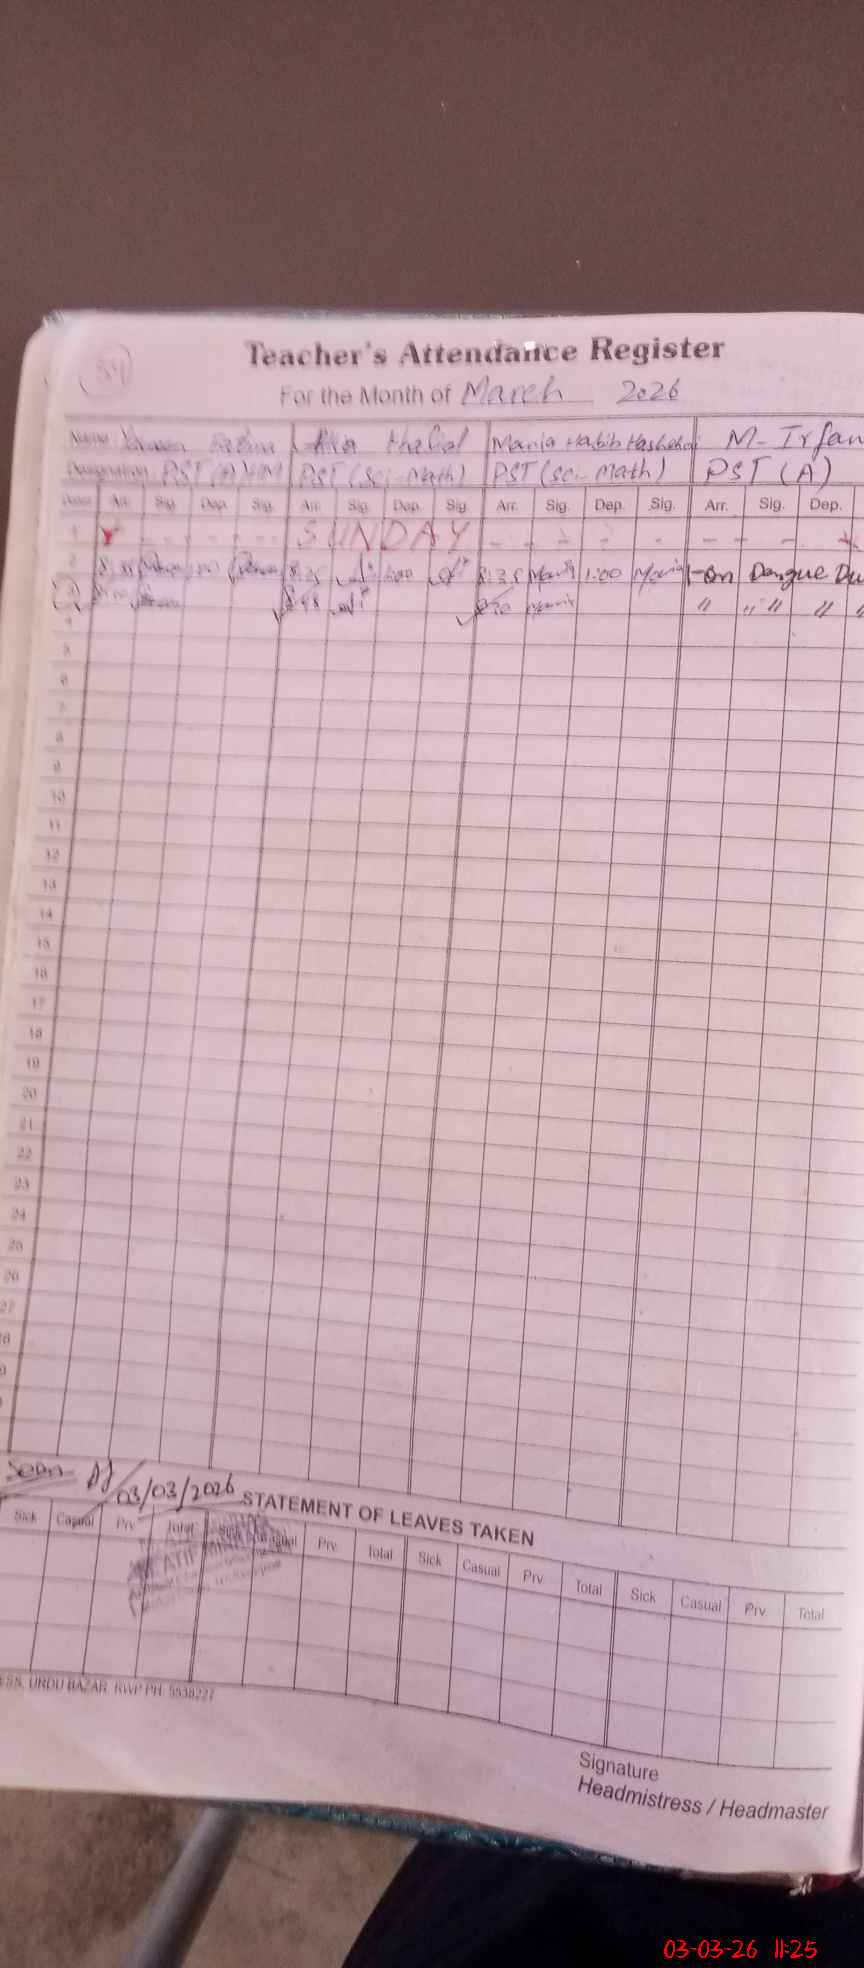 54
Teacher's Attendance Register
For the Month of March 2026
Name Fatima Khalid Mania Habib Hashmi M- Irfan
Designation PST (A) HM PST (Sci-Math) PST (Sci- Math) PST (A)
Dates Arr. Sig. Dep. Sig. Arr. Sig. Dep. Sig. Arr. Sig. Dep. Sig. Arr. Sig. Dep.
1 SUNDAY
2 8:25 8:25 Mania 1:00 Mania -On Dangue Du
3 Mania " " " " "
4
5
6
7
8
9
10
11
12
13
14
15
16
17
18
19
20
21
22
23
24
25
26
27
Seen 03/03/2026
STATEMENT OF LEAVES TAKEN
Sick Casual Prv. Total Sick Casual Prv. Total Sick Casual Prv. Total Sick Casual Prv. Total
URDU BAZAR RWP PH: 5538227
Signature
Headmistress / Headmaster
03-03-26 11:25